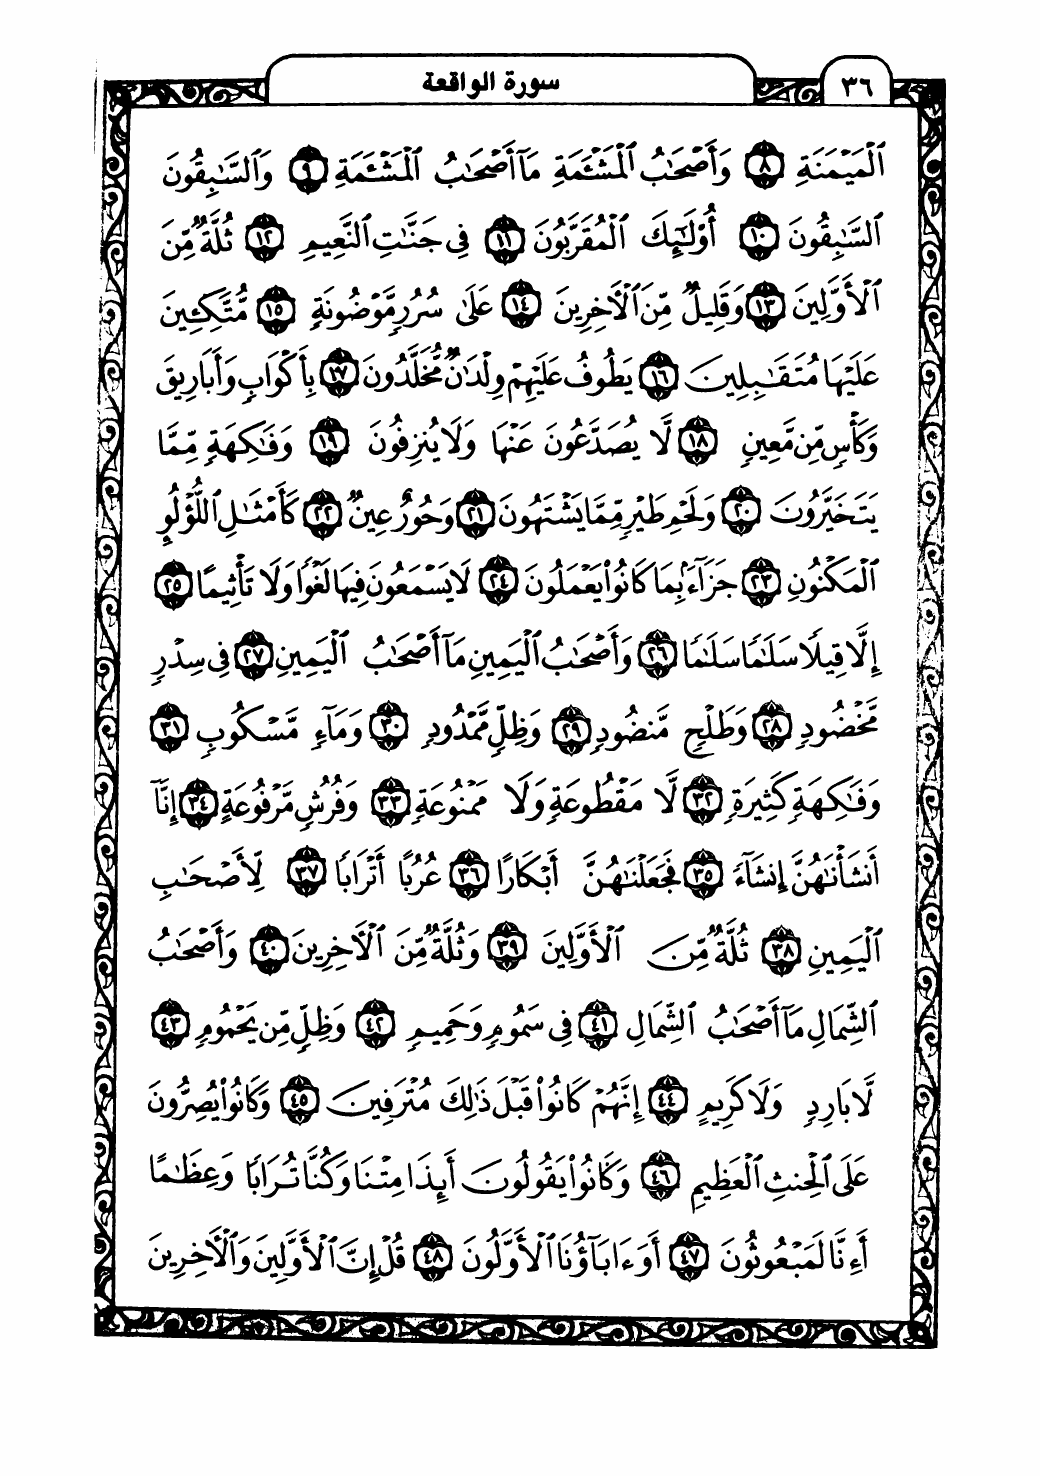 سورة الواقعة
٣٦
ٱلْمَيْمَنَةِ ٨ وَأَصْحَٰبُ ٱلْمَشْـَٔمَةِ مَآ أَصْحَٰبُ ٱلْمَشْـَٔمَةِ ٩ وَٱلسَّٰبِقُونَ
ٱلسَّٰبِقُونَ ١٠ أُو۟لَٰٓئِكَ ٱلْمُقَرَّبُونَ ١١ فِى جَنَّٰتِ ٱلنَّعِيمِ ١٢ ثُلَّةٌ مِّنَ
ٱلْأَوَّلِينَ ١٣ وَقَلِيلٌ مِّنَ ٱلْءَاخِرِينَ ١٤ عَلَىٰ سُرُرٍ مَّوْضُونَةٍ ١٥ مُّتَّكِـِٔينَ
عَلَيْهَا مُتَقَٰبِلِينَ ١٦ يَطُوفُ عَلَيْهِمْ وِلْدَٰنٌ مُّخَلَّدُونَ ١٧ بِأَكْوَابٍ وَأَبَارِيقَ
وَكَأْسٍ مِّن مَّعِينٍ ١٨ لَّا يُصَدَّعُونَ عَنْهَا وَلَا يُنزِفُونَ ١٩ وَفَٰكِهَةٍ مِّمَّا
يَتَخَيَّرُونَ ٢٠ وَلَحْمِ طَيْرٍ مِّمَّا يَشْتَهُونَ ٢١ وَحُورٌ عِينٌ ٢٢ كَأَمْثَٰلِ ٱللُّؤْلُؤِ
ٱلْمَكْنُونِ ٢٣ جَزَآءًۢ بِمَا كَانُوا۟ يَعْمَلُونَ ٢٤ لَا يَسْمَعُونَ فِيهَا لَغْوًا وَلَا تَأْثِيمًا ٢٥
إِلَّا قِيلًا سَلَٰمًا سَلَٰمًا ٢٦ وَأَصْحَٰبُ ٱلْيَمِينِ مَآ أَصْحَٰبُ ٱلْيَمِينِ ٢٧ فِى سِدْرٍ
مَّخْضُودٍ ٢٨ وَطَلْحٍ مَّنضُودٍ ٢٩ وَظِلٍّ مَّمْدُودٍ ٣٠ وَمَآءٍ مَّسْكُوبٍ ٣١
وَفَٰكِهَةٍ كَثِيرَةٍ ٣٢ لَّا مَقْطُوعَةٍ وَلَا مَمْنُوعَةٍ ٣٣ وَفُرُشٍ مَّرْفُوعَةٍ ٣٤ إِنَّآ
أَنشَأْنَٰهُنَّ إِنشَآءً ٣٥ فَجَعَلْنَٰهُنَّ أَبْكَارًا ٣٦ عُرُبًا أَتْرَابًا ٣٧ لِّأَصْحَٰبِ
ٱلْيَمِينِ ٣٨ ثُلَّةٌ مِّنَ ٱلْأَوَّلِينَ ٣٩ وَثُلَّةٌ مِّنَ ٱلْءَاخِرِينَ ٤٠ وَأَصْحَٰبُ
ٱلشِّمَالِ مَآ أَصْحَٰبُ ٱلشِّمَالِ ٤١ فِى سَمُومٍ وَحَمِيمٍ ٤٢ وَظِلٍّ مِّن يَحْمُومٍ ٤٣
لَّا بَارِدٍ وَلَا كَرِيمٍ ٤٤ إِنَّهُمْ كَانُوا۟ قَبْلَ ذَٰلِكَ مُتْرَفِينَ ٤٥ وَكَانُوا۟ يُصِرُّونَ
عَلَى ٱلْحِنثِ ٱلْعَظِيمِ ٤٦ وَكَانُوا۟ يَقُولُونَ أَئِذَا مِتْنَا وَكُنَّا تُرَابًا وَعِظَٰمًا
أَءِنَّا لَمَبْعُوثُونَ ٤٧ أَوَءَابَآؤُنَا ٱلْأَوَّلُونَ ٤٨ قُلْ إِنَّ ٱلْأَوَّلِينَ وَٱلْءَاخِرِينَ